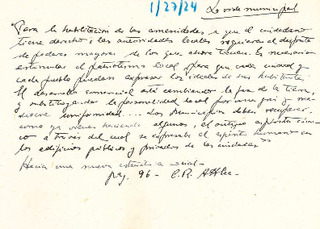 1/27/24 La vida municipal
"Para la habilitación de las amenidades a que el ciudadano
tiene derecho, las autoridades locales requieren el depósito
de poderes mayores de los que ahora tienen. Es necesario
estimular el patriotismo local para que cada ciudad y
cada pueblo puedan expresar los ideales de sus habitantes.
El desarrollo comercial está cambiando la faz de la tierra,
y substituyendo la personalidad local por una gris y
uniformidad... Los Municipios deben recuperar,
como ya vienen haciendo algunos, el antiguo espíritu cívico
a través del cual se expresaba el espíritu humano en
los edificios públicos y privados de las ciudades"
Hacia una nueva estructura social -
pag. 96 - C.R. Attlee -